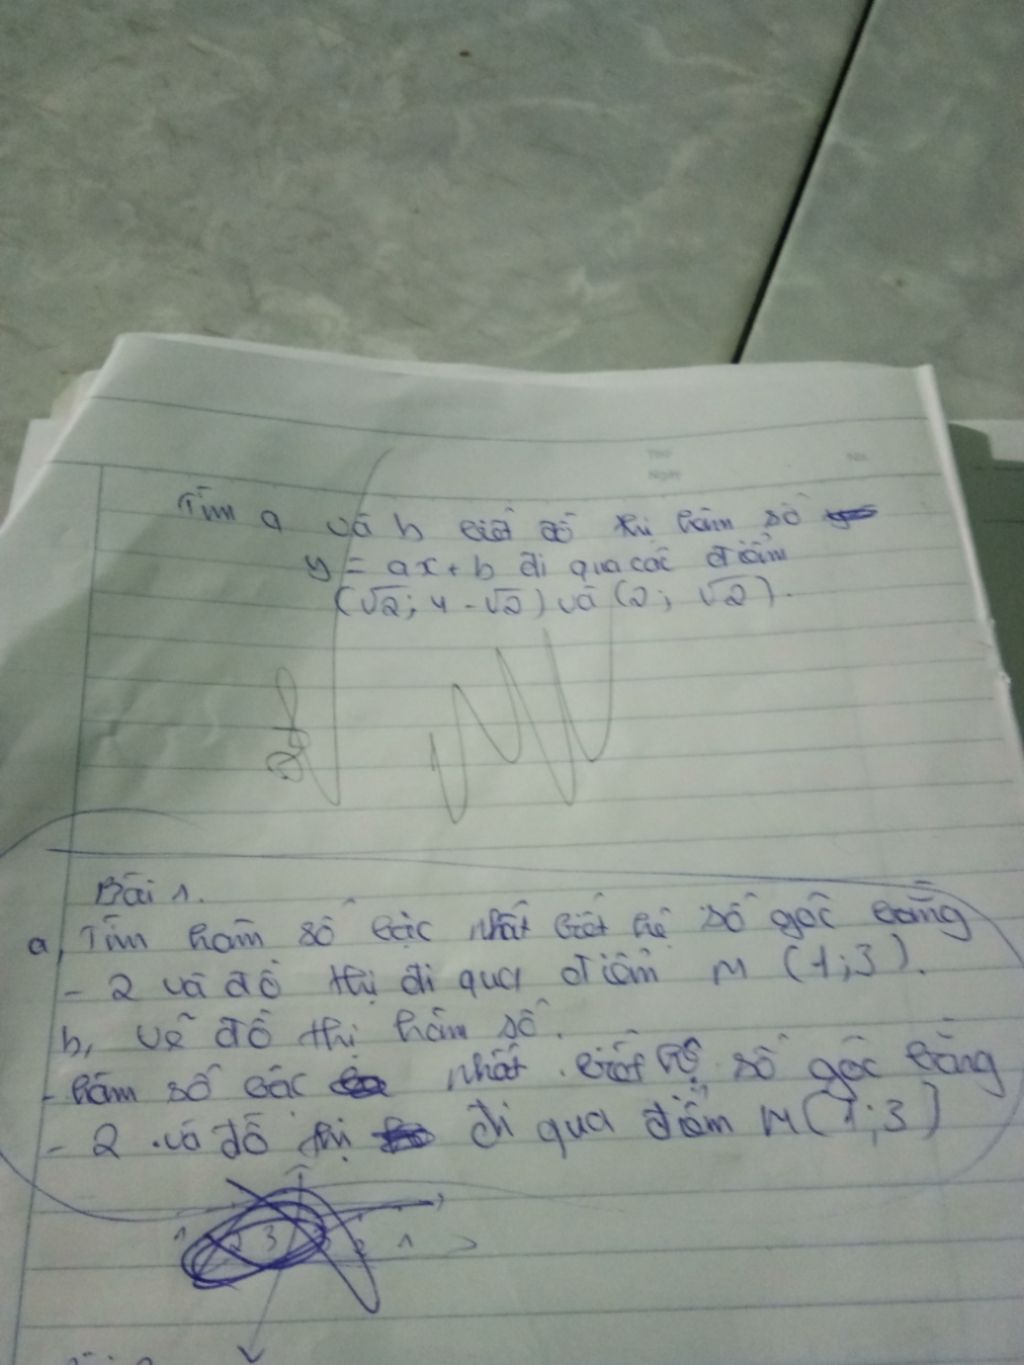 Tìm a và b biết đồ thị hàm số
y = ax + b đi qua các điểm
(√2; 4 - √2) và (2; √2).
Bài 1.
a, Tìm hàm số bậc nhất biết hệ số góc bằng
- 2 và đồ thị đi qua điểm M (1;3).
b, vẽ đồ thị hàm số.
- hàm số bậc nhất. biết hệ số góc bằng
- 2 và đồ thị đi qua điểm M(1;3)